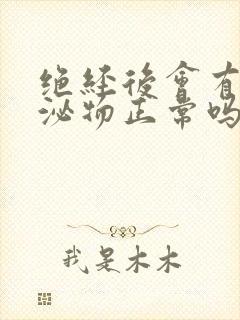 绝經後會有
泌物正常吗
我是木木